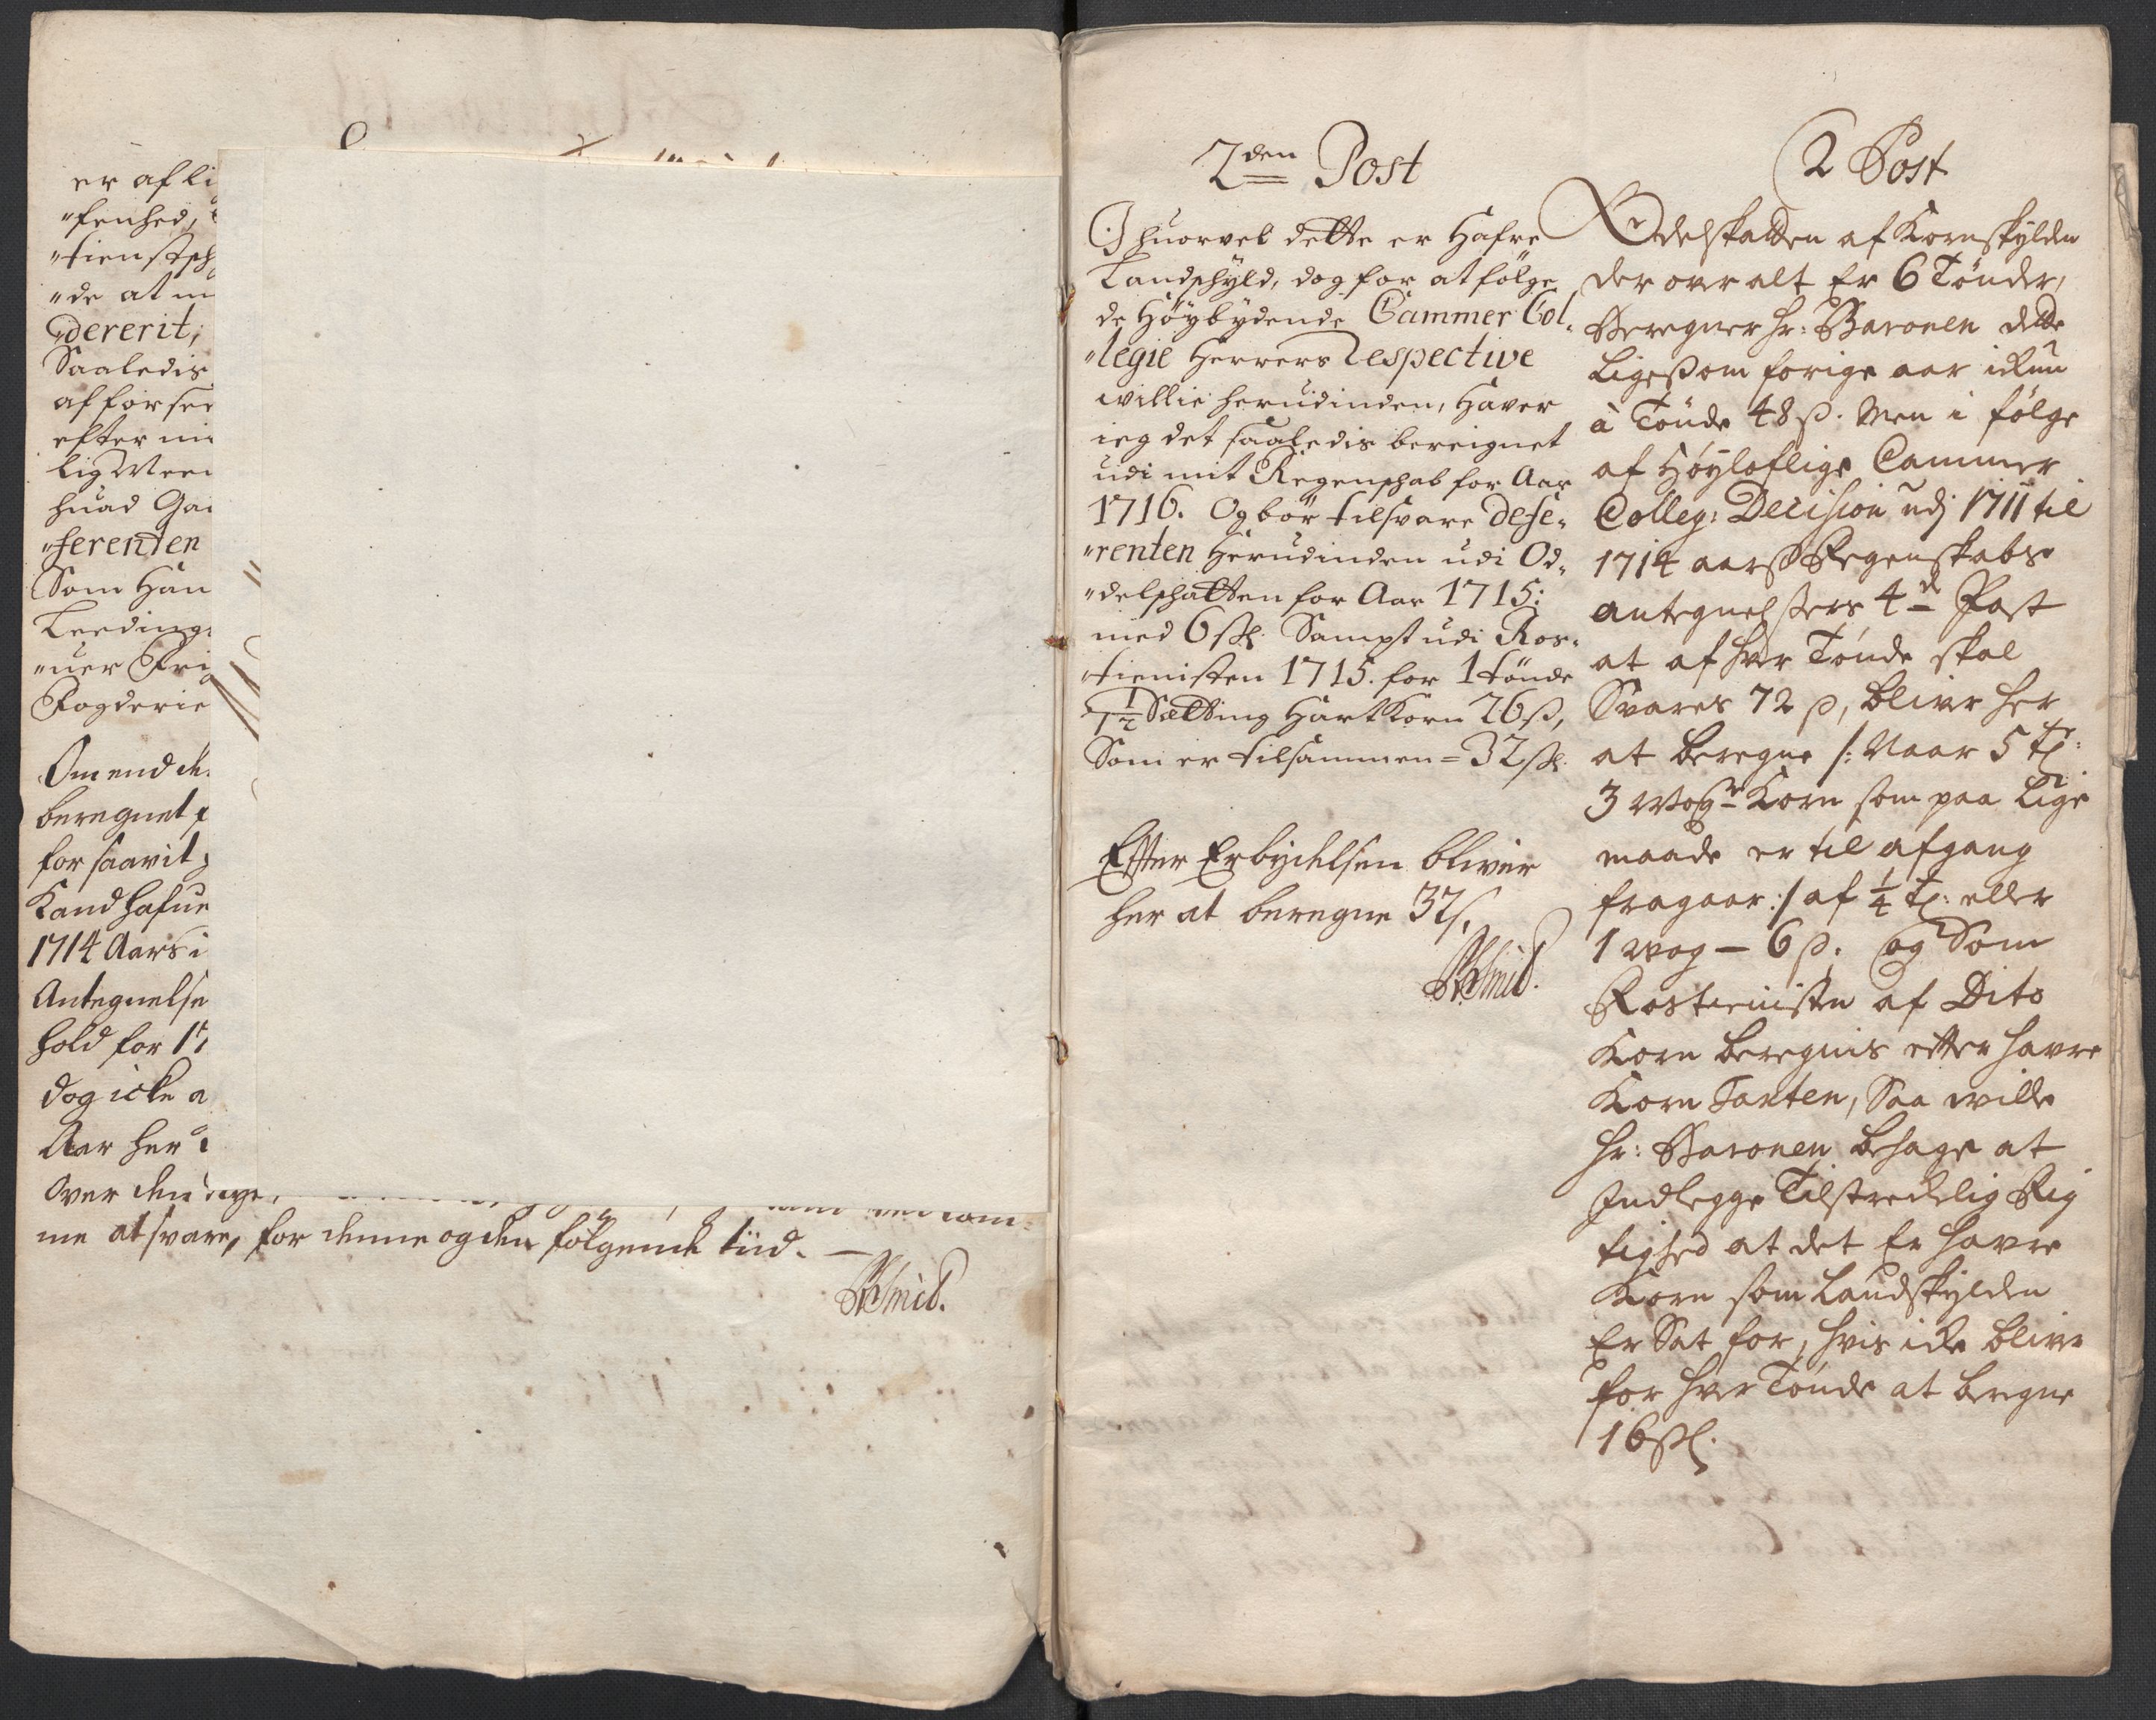 er af li
"fenhed,
"tienstsch
"de at m
dererit,
Saaledis
af forsee
efter mi
lig Meen
huad Ga
"ferenten
Som Han
Leeding
"uer Fri
Fogderie
Om end de
beregnet
for saavit
Kand hafue
1714 Aars i
Antegnelse
hold for 17
dog icke a
Aar her
Over den
me at svare, for denne og den følgende tiid. —
Smid.
2den Post
Ihuorvel dette er Hafre
Landschyld, dog for at følge
de Høybydende Cammer Col„
"legie Herrers Respective
willie herudinden, Haver
ieg det saaledis bereignet
udi mit Regenschab for Aar
1716. Og bør tilsvare defe„
"renten Herudinden udi Od„
"delschatten for Aar 1715:
med 6 sk. Sampt udi Ros„
"tienisten 1715. for 1 tønde
1½ Setting Hart Korn 26 ß,
Som er tilsammen = 32 sk.
Efter Erbydelsen bliver
her at beregne 32 s.
Smid.
2 Post
Odelskatten af Kornskylden
der over alt Er 6 Tønder,
Beregner hr: Baronen dette
Ligesom forige aar ickun
à Tønde 48 ß. Men i følge
af Høyloflige Cammer
Colleg: Decision udj 1711 til
1714 aarß Regenskabs
antegnelssers 4de Post
at af hver Tønde skal
Svares 72 ß, blivr her
at beregne /: Naar 5 Tr:
3 Wogr Korn som paa lige
maade er til afgang
fragaar :/ af ¼ T: eller
1 wog — 6 ß. og Som
Rostienisten af Dito
Korn beregnis efter havre
Korn Taxten, Saa wille
hr: Baronen behage at
Indlegge Tilstreckelig Rig
tighed at det Er havre
Korn som Landskylden
Er Sat for, hvis icke blivr
for hver Tønde at beregne
16 sk.